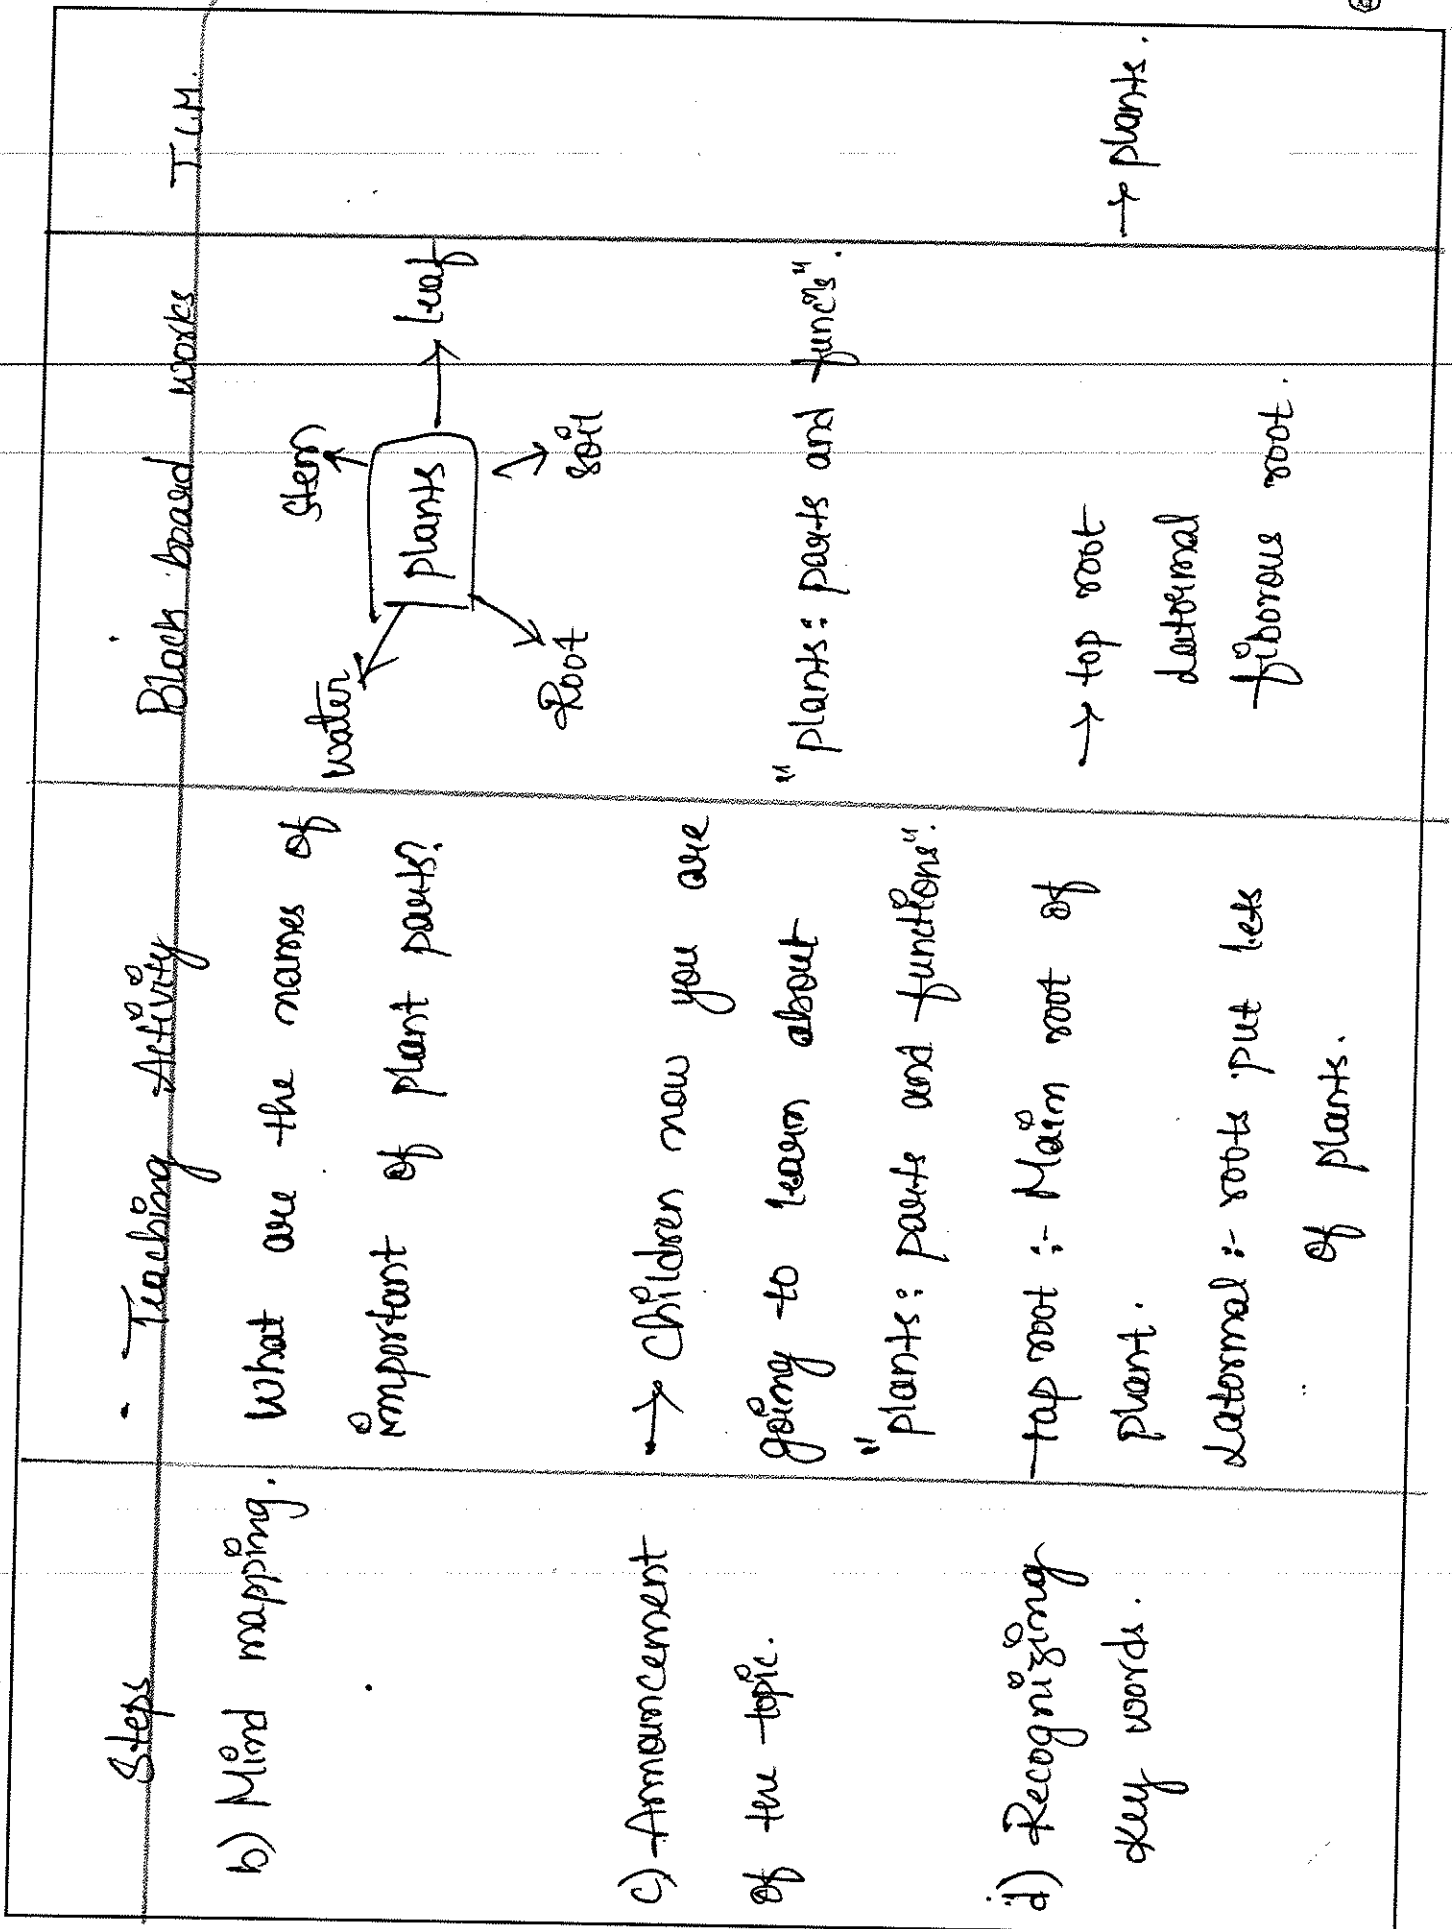 Steps
Teaching Activity
Black board works
T.L.M.
b) Mind mapping.
What are the names of
important of plant parts?
Stem
water
plants
leaf
Root
soil
c) Announcement
of the topic.
→ Children now you are
going to learn about
"plants: parts and functions".
"plants: parts and funcns".
d) Recognizing
key words.
tap root :- Main root of
plant.
Latormal :- roots put lets
of plants.
→ top root
Latormal
fiborous root.
→ plants.